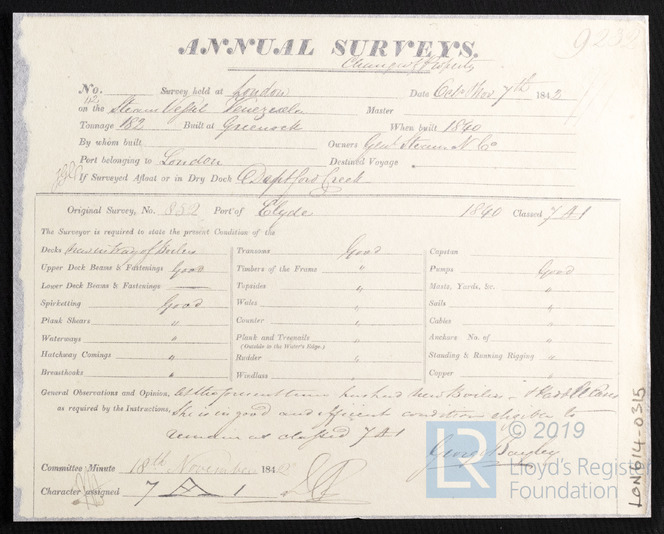 9232
ANNUAL SURVEYS.
Change of Property
No. 42 Survey held at London Date Octr & Nov 7th 1842
on the Steam Vessel Venezuela Master
Tonnage 182 Built at Greenock When built 1840
By whom built Owners Genl. Steam N. Co
Port belonging to London Destined Voyage
If Surveyed Afloat or in Dry Dock Deptford Creek
Original Survey, No. 852 Port of Clyde 1840 Classed 7 A 1
The Surveyor is required to state the present Condition of the
Decks new in way of Boilers
Upper Deck Beams & Fastenings Good
Lower Deck Beams & Fastenings —
Spirketting Good
Plank Shears "
Waterways "
Hatchway Comings "
Breasthooks "
Transoms Good
Timbers of the Frame "
Topsides "
Wales "
Counter "
Plank and Treenails "
(Outside to the Water's Edge.)
Rudder "
Windlass "
Capstan
Pumps Good
Masts, Yards, &c. "
Sails "
Cables "
Anchors No. of "
Standing & Running Rigging "
Copper "
General Observations and Opinion, At the present time has had new Boilers -
as required by the Instructions, She is in good and efficient condition eligible to
remain as classed 7 A 1
George Bayley
Committee Minute 18th November 1842
Character assigned 7 A 1
LON614-0315
© 2019
LR
Lloyd's Register
Foundation